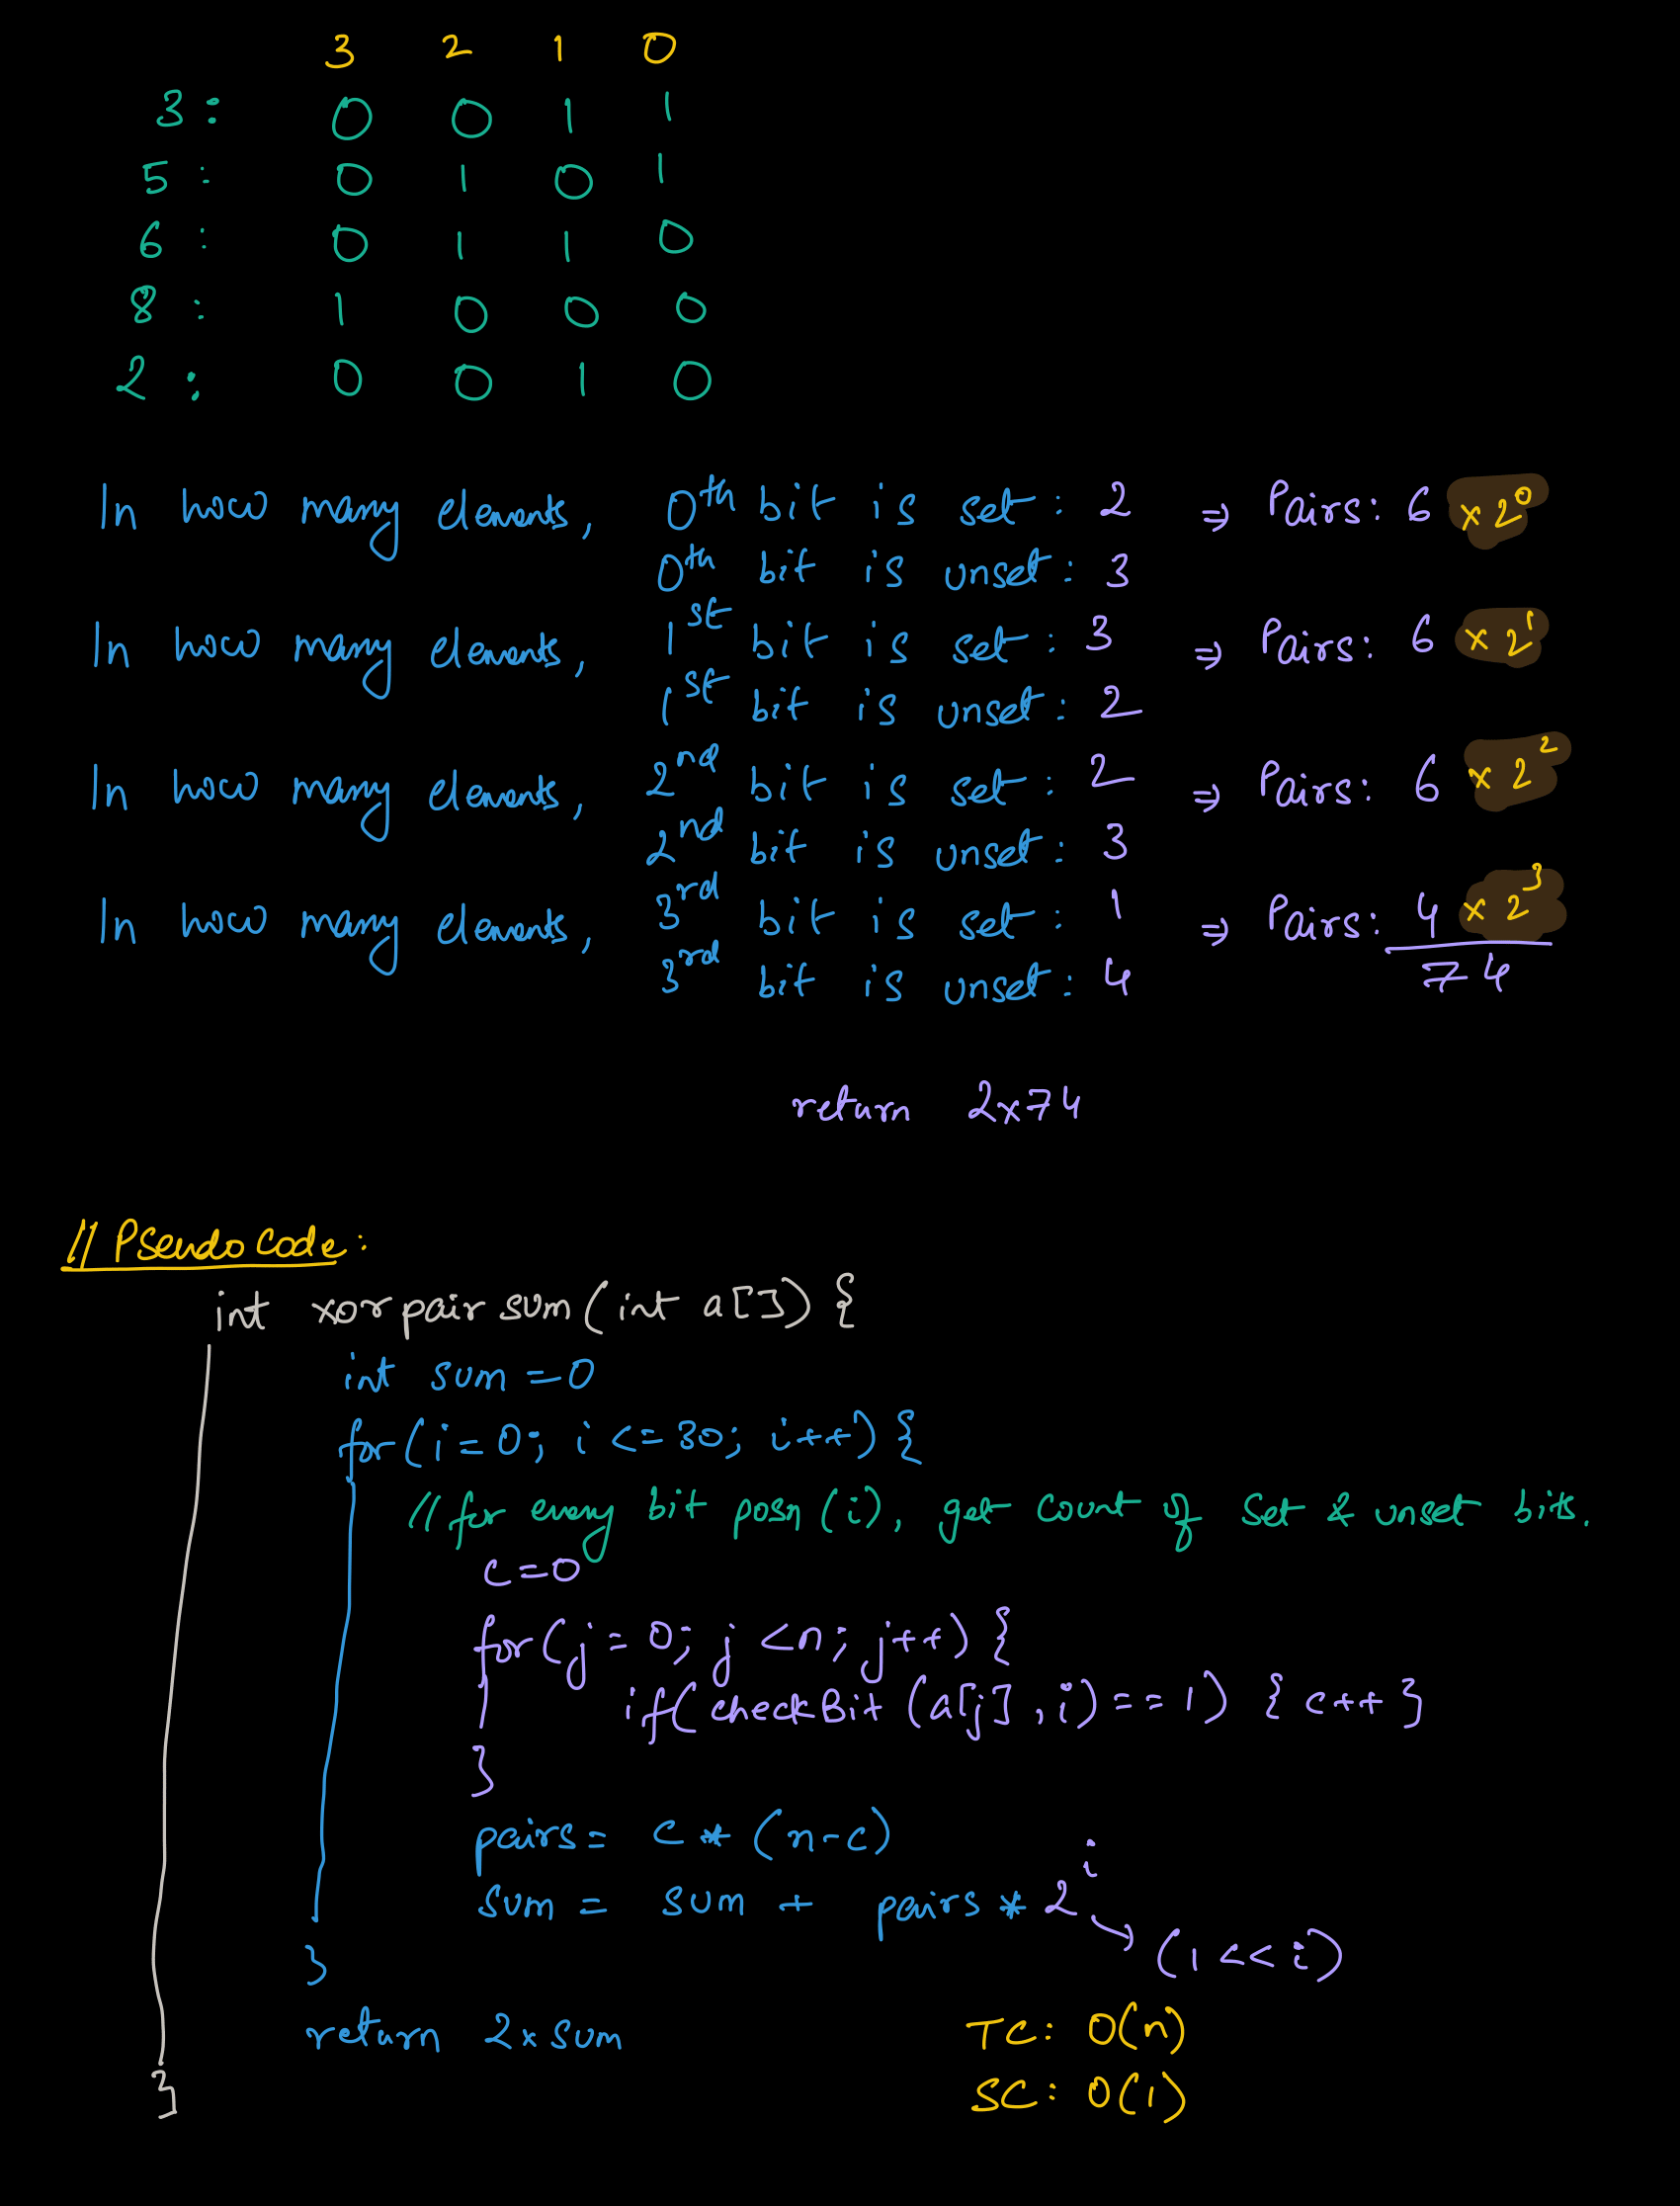 3 2 1 0
3 : 0 0 1 1
5 : 0 1 0 1
6 : 0 1 1 0
8 : 1 0 0 0
2 : 0 0 1 0
In how many elements, 0th bit is set : 2 ⇒ Pairs: 6 x 2^0
0th bit is unset : 3
In how many elements, 1st bit is set : 3 ⇒ Pairs: 6 x 2^1
1st bit is unset : 2
In how many elements, 2nd bit is set : 2 ⇒ Pairs: 6 x 2^2
2nd bit is unset : 3
In how many elements, 3rd bit is set : 1 ⇒ Pairs: 4 x 2^3
3rd bit is unset : 4
74
return 2x74
// Pseudo Code :
int xorpairsum(int a[]) {
int sum = 0
for(i = 0; i <= 30; i++) {
// for every bit posn (i), get count of set & unset bits.
c = 0
for(j = 0; j < n; j++) {
if( checkBit (a[j], i) == 1) { c++ }
}
pairs = c * (n-c)
sum = sum + pairs * 2^i
→ (1 << i)
}
return 2 x sum
TC : O(n)
}
SC : O(1)